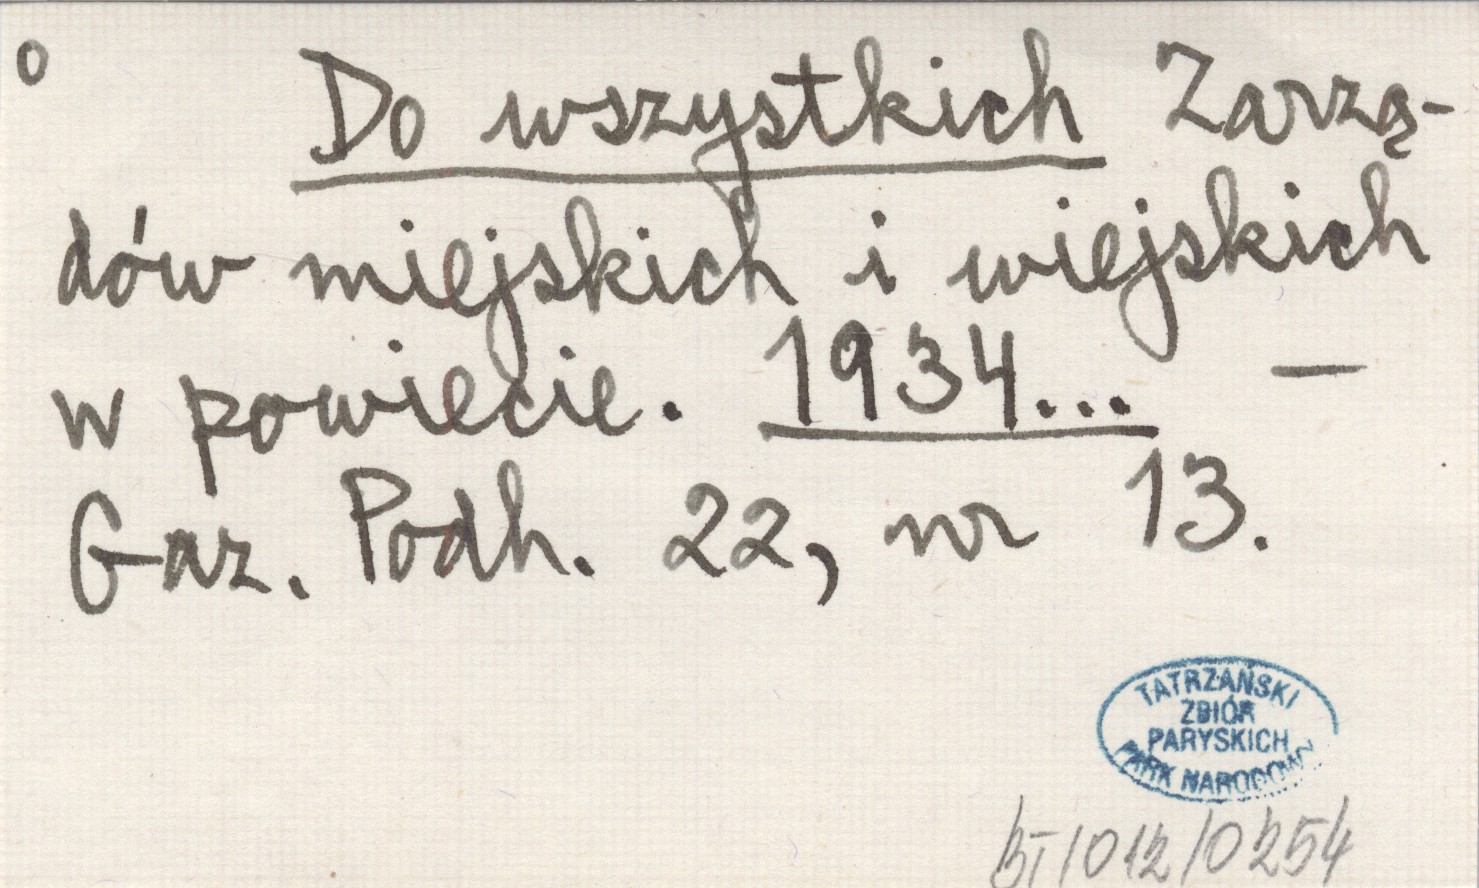 o Do wszystkich Zarzą-
dów miejskich i wiejskich
w powiecie. 1934... —
Gaz. Podh. 22, nr 13.
TATRZAŃSKI
ZBIÓR
PARYSKICH
PARK NARODOWY
BI/012/0254